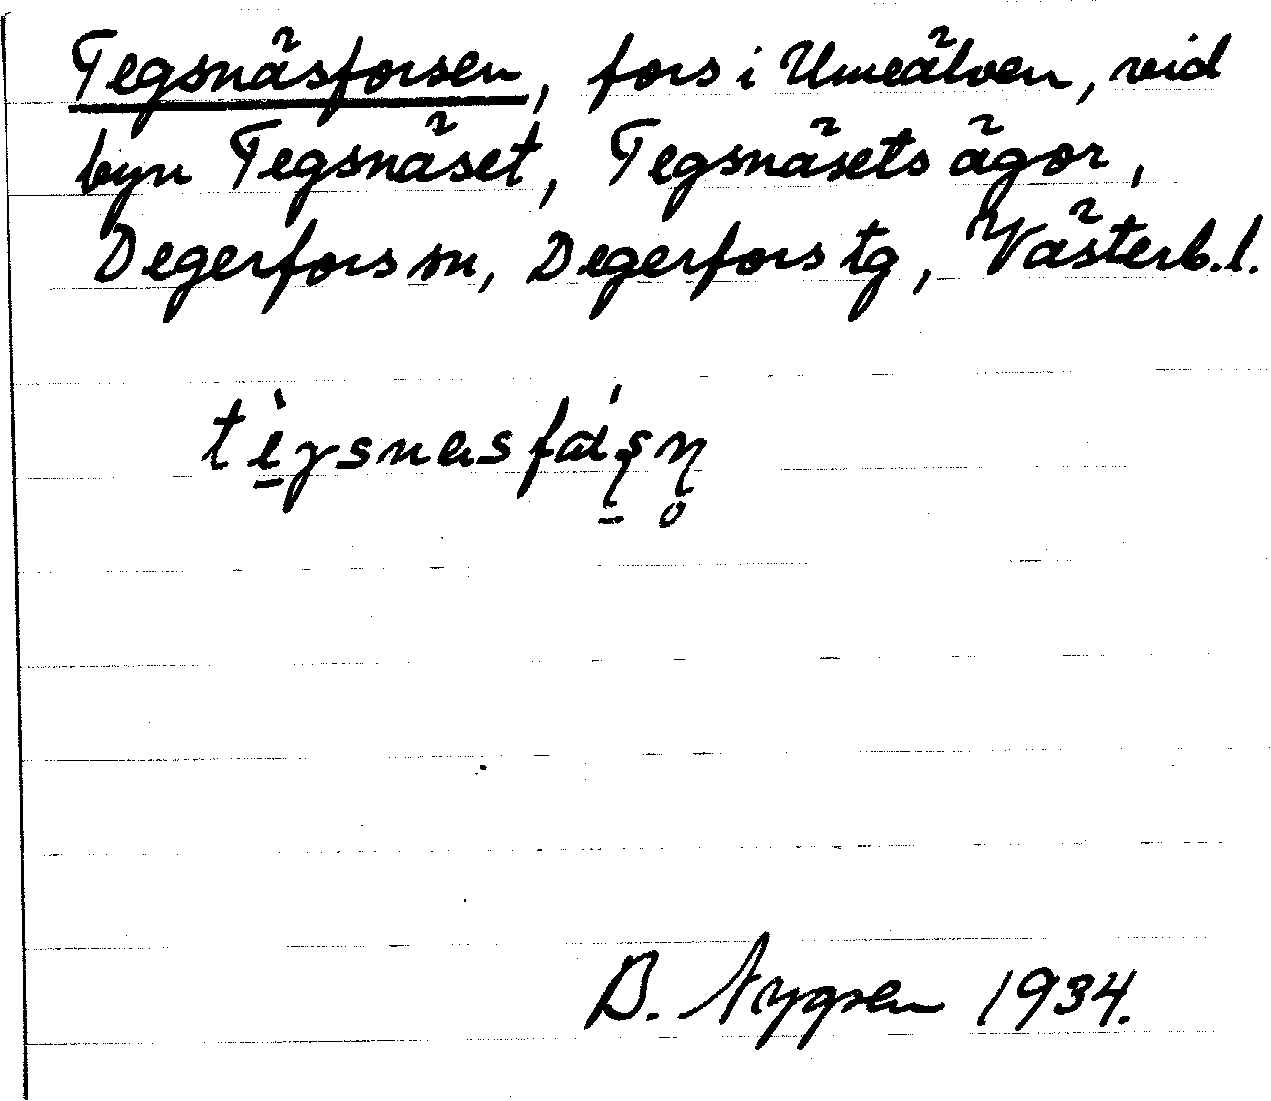 Tegsnäsforsen, fors i Umeälven, vid
byn Tegsnäset, Tegsnäsets ägor,
Degerfors sn, Degerfors tg, Västerb.l.
B. Nygren 1934.